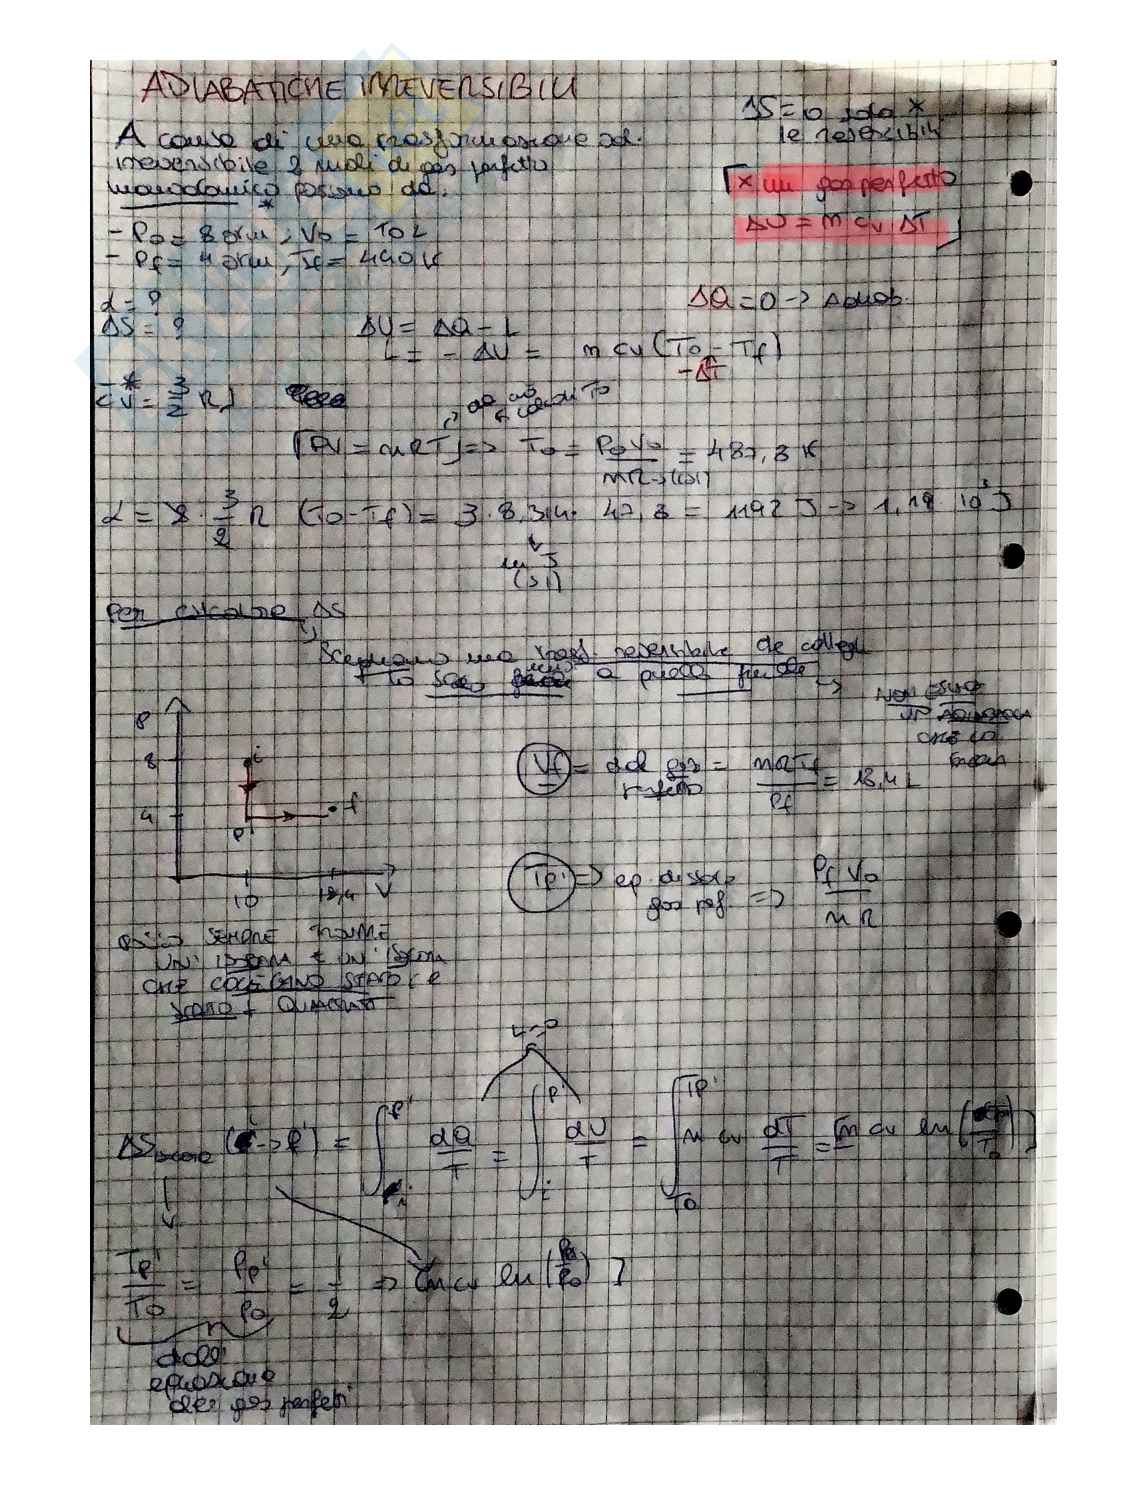 ADIABATICHE IRREVERSIBILI
ΔS = 0 solo *
le reversibili
A causa di una trasformazione ad.
irreversibile 2 moli di gas perfetto
monoatomico * passano da:
* un gas perfetto
ΔU = n cv ΔT
- P0 = 8 atm, V0 = 10 L
- Pf = 4 atm, Tf = 440 K
L = ?
ΔQ = 0 -> Adiab.
ΔS = ?
ΔU = ΔQ - L
L = - ΔU = n cv (T0 - Tf)
- ΔT
* cv = 3/2 R
[PV = nRT] => T0 = P0 V0 / nR = 487,8 K
L = 2 · 3/2 R (T0 - Tf) = 3 · 8,314 · 47,8 = 1192 J -> 1,19 · 10³ J
in J
(SI)
Per calcolare ΔS
Scegliamo una trasf. reversibile che collega
lo stato a quello finale
NON ESISTE
UN'ADIABATICA
CHE LO
FACCIA
P
8
i
Vf = dal gas perfetto = nRTf / Pf = 18,4 L
4
f
P'
10
18,4
V
Tp' => eq. di stato
gas perf. => Pf V0 / nR
SEMPRE
UN' ISOCORA E UN' ISOBARA
CHE COLLEGANO STATO
L = 0
ΔS isocora (i -> P') = ∫ i P' dQ/T = ∫ i P' dU/T = ∫ T0 Tp' n cv dT/T = [n cv ln (Tp'/T0)]
Tp'/T0 = Pp'/P0 = 1/2 => [n cv ln (Pf/P0)]
dall'
equazione
dei gas perfetti